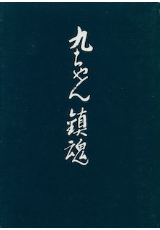 九ちゃん鎮魂